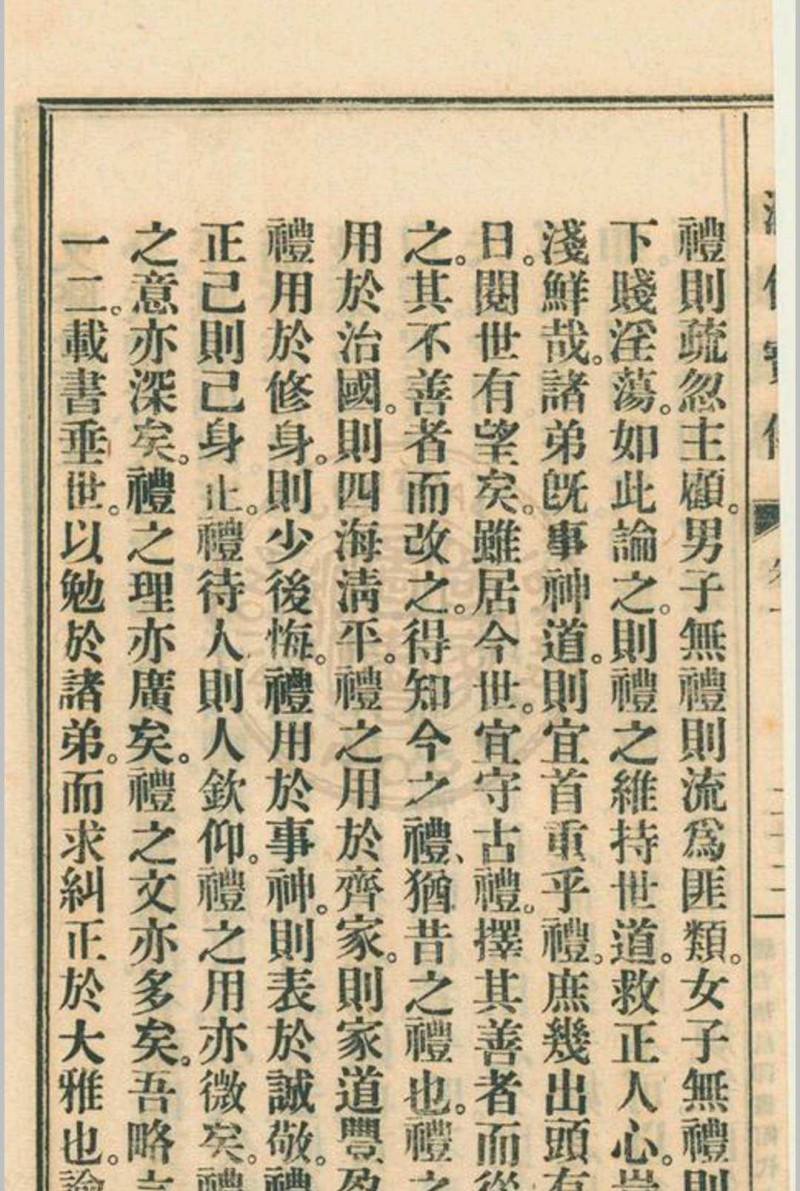 禮則疏忽主顧。男子無禮則流爲匪類。女子無禮則
下賤淫蕩。如此論之。則禮之維持世道。救正人心。豈
淺鮮哉。諸弟既事神道。則宜首重乎禮。庶幾出頭有
日。閱世有望矣。雖居今世。宜守古禮。擇其善者而從
之。其不善者而改之。得知今之禮、猶昔之禮也。禮之
用於治國。則四海淸平。禮之用於齊家。則家道豐盈
禮用於修身。則少後悔。禮用於事神。則表於誠敬。禮
正己則己身止。禮待人則人欽仰。禮之用亦微矣。禮
之意亦深矣。禮之理亦廣矣。禮之文亦多矣。吾略言
一二。載書垂世。以勉於諸弟。而求糾正於大雅也。論
二十二